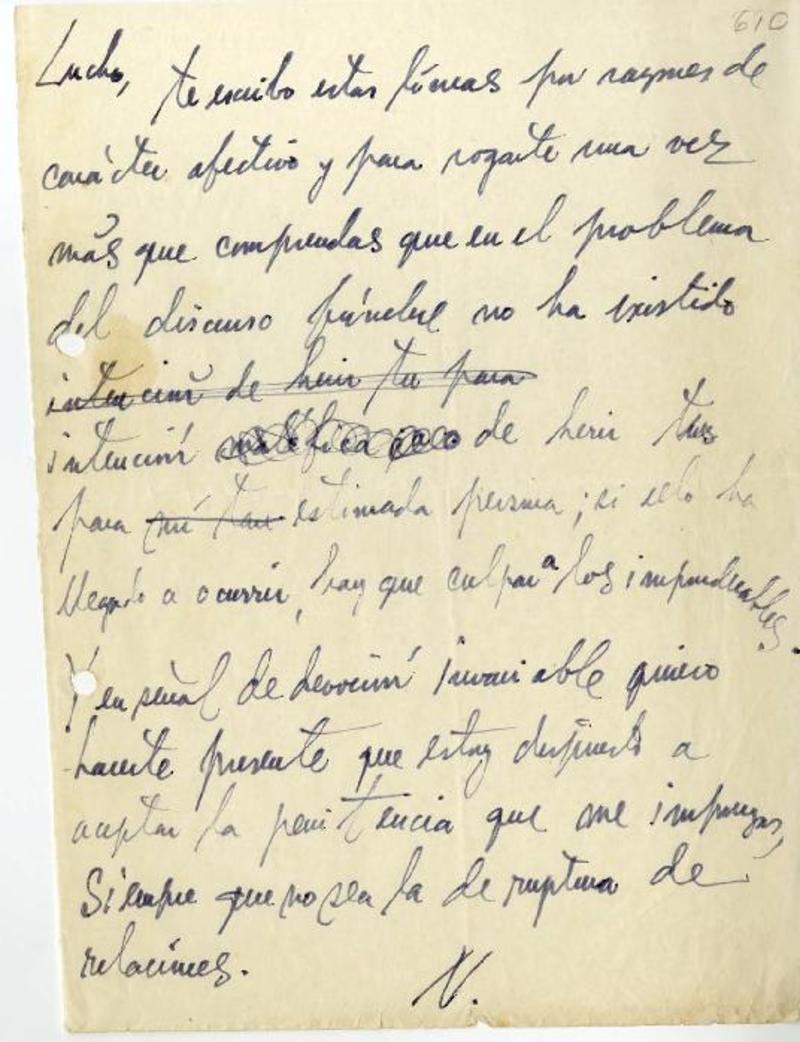 610
Lucho, te escribo estas líneas por razones de
carácter afectivo y para rogarte una vez
más que comprendas que en el problema
del discurso fúnebre no ha existido
intención de herir tu para
intención maléfica de herir tus
para mí tan estimada persona; si se lo ha
llegado a ocurrir, hay que culpar a los imponderables.
Y en señal de devoción invariable quiero
hacerte presente que estoy dispuesto a
aceptar la penitencia que me impongas,
Siempre que no sea la de ruptura de
relaciones.
N.